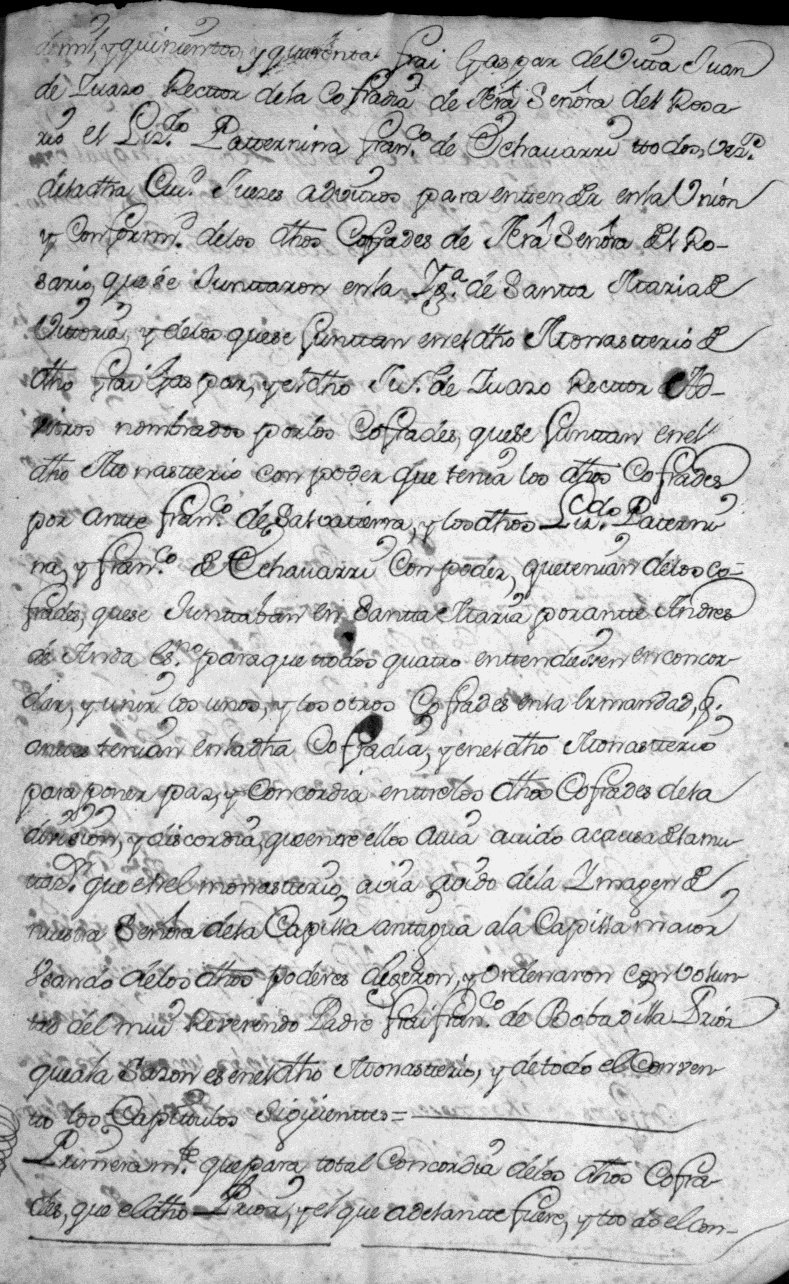 de mil, y quinientos, y quarenta frai Gaspar de Vitta Juan
de Juaso Recttor de la Cofradia de Nrâ Señôra del Rosa
rio el Liz.do Patternina fran.co de Echauarri ttodos vez.s
de la dha Ciu.d Juezes advitros para entender en la Vnion
y Conform.d de los dhos Cofrades de Nrâ Señôra del Ro-
sario, que se Junttaron en la Ygª. de Santta Maria de
Vittoria, y de los que se Junttan en el dho Monastterio de
dho frai Gaspar, y el dho Ju.n de Juaso Recttor Ad-
vitros nombrados por los Cofrades, que se Junttan en el
dho Monastterio con poder que tenia los dhos Cofrades
por antte fran.co de Salvatierra, y los dhos Liz.dos Paterni
na, y fran.co de Echauarri Con poder, que tenian de los co=
frades, que se Junttaban en Santta Maria por antte Andres
de Anda es.no para que ttodos quatro enttendiesen en concor
dar, y unir los unos, y los otros Cofrades en la ermandad, q.
antes tenian en la dha Cofradia, y en el dho Monastterio
para poner paz, y Concordia enttre los dhos Cofrades de la
division, y discordia, que entre ellos avia avido a causa de la mu
ttaz.n que en el monastterio avia avido de la Ymagen de
nuestra Señôra de la Capilla anttigua a la Capilla maior
Vsando de los dhos poderes dixeron, y ordenaron con volun
tto del mui Reverendo Padre frai fran.co de Bobadilla Prior
que a la sazon es en el dho Monastterio, y de todo el Conven
tto los Capittulos siguienttes=
Primeram.te que para total Concordia de los dhos Cofra
des, que el dho Prior, y el que adelantte fuere, y tto do el con-